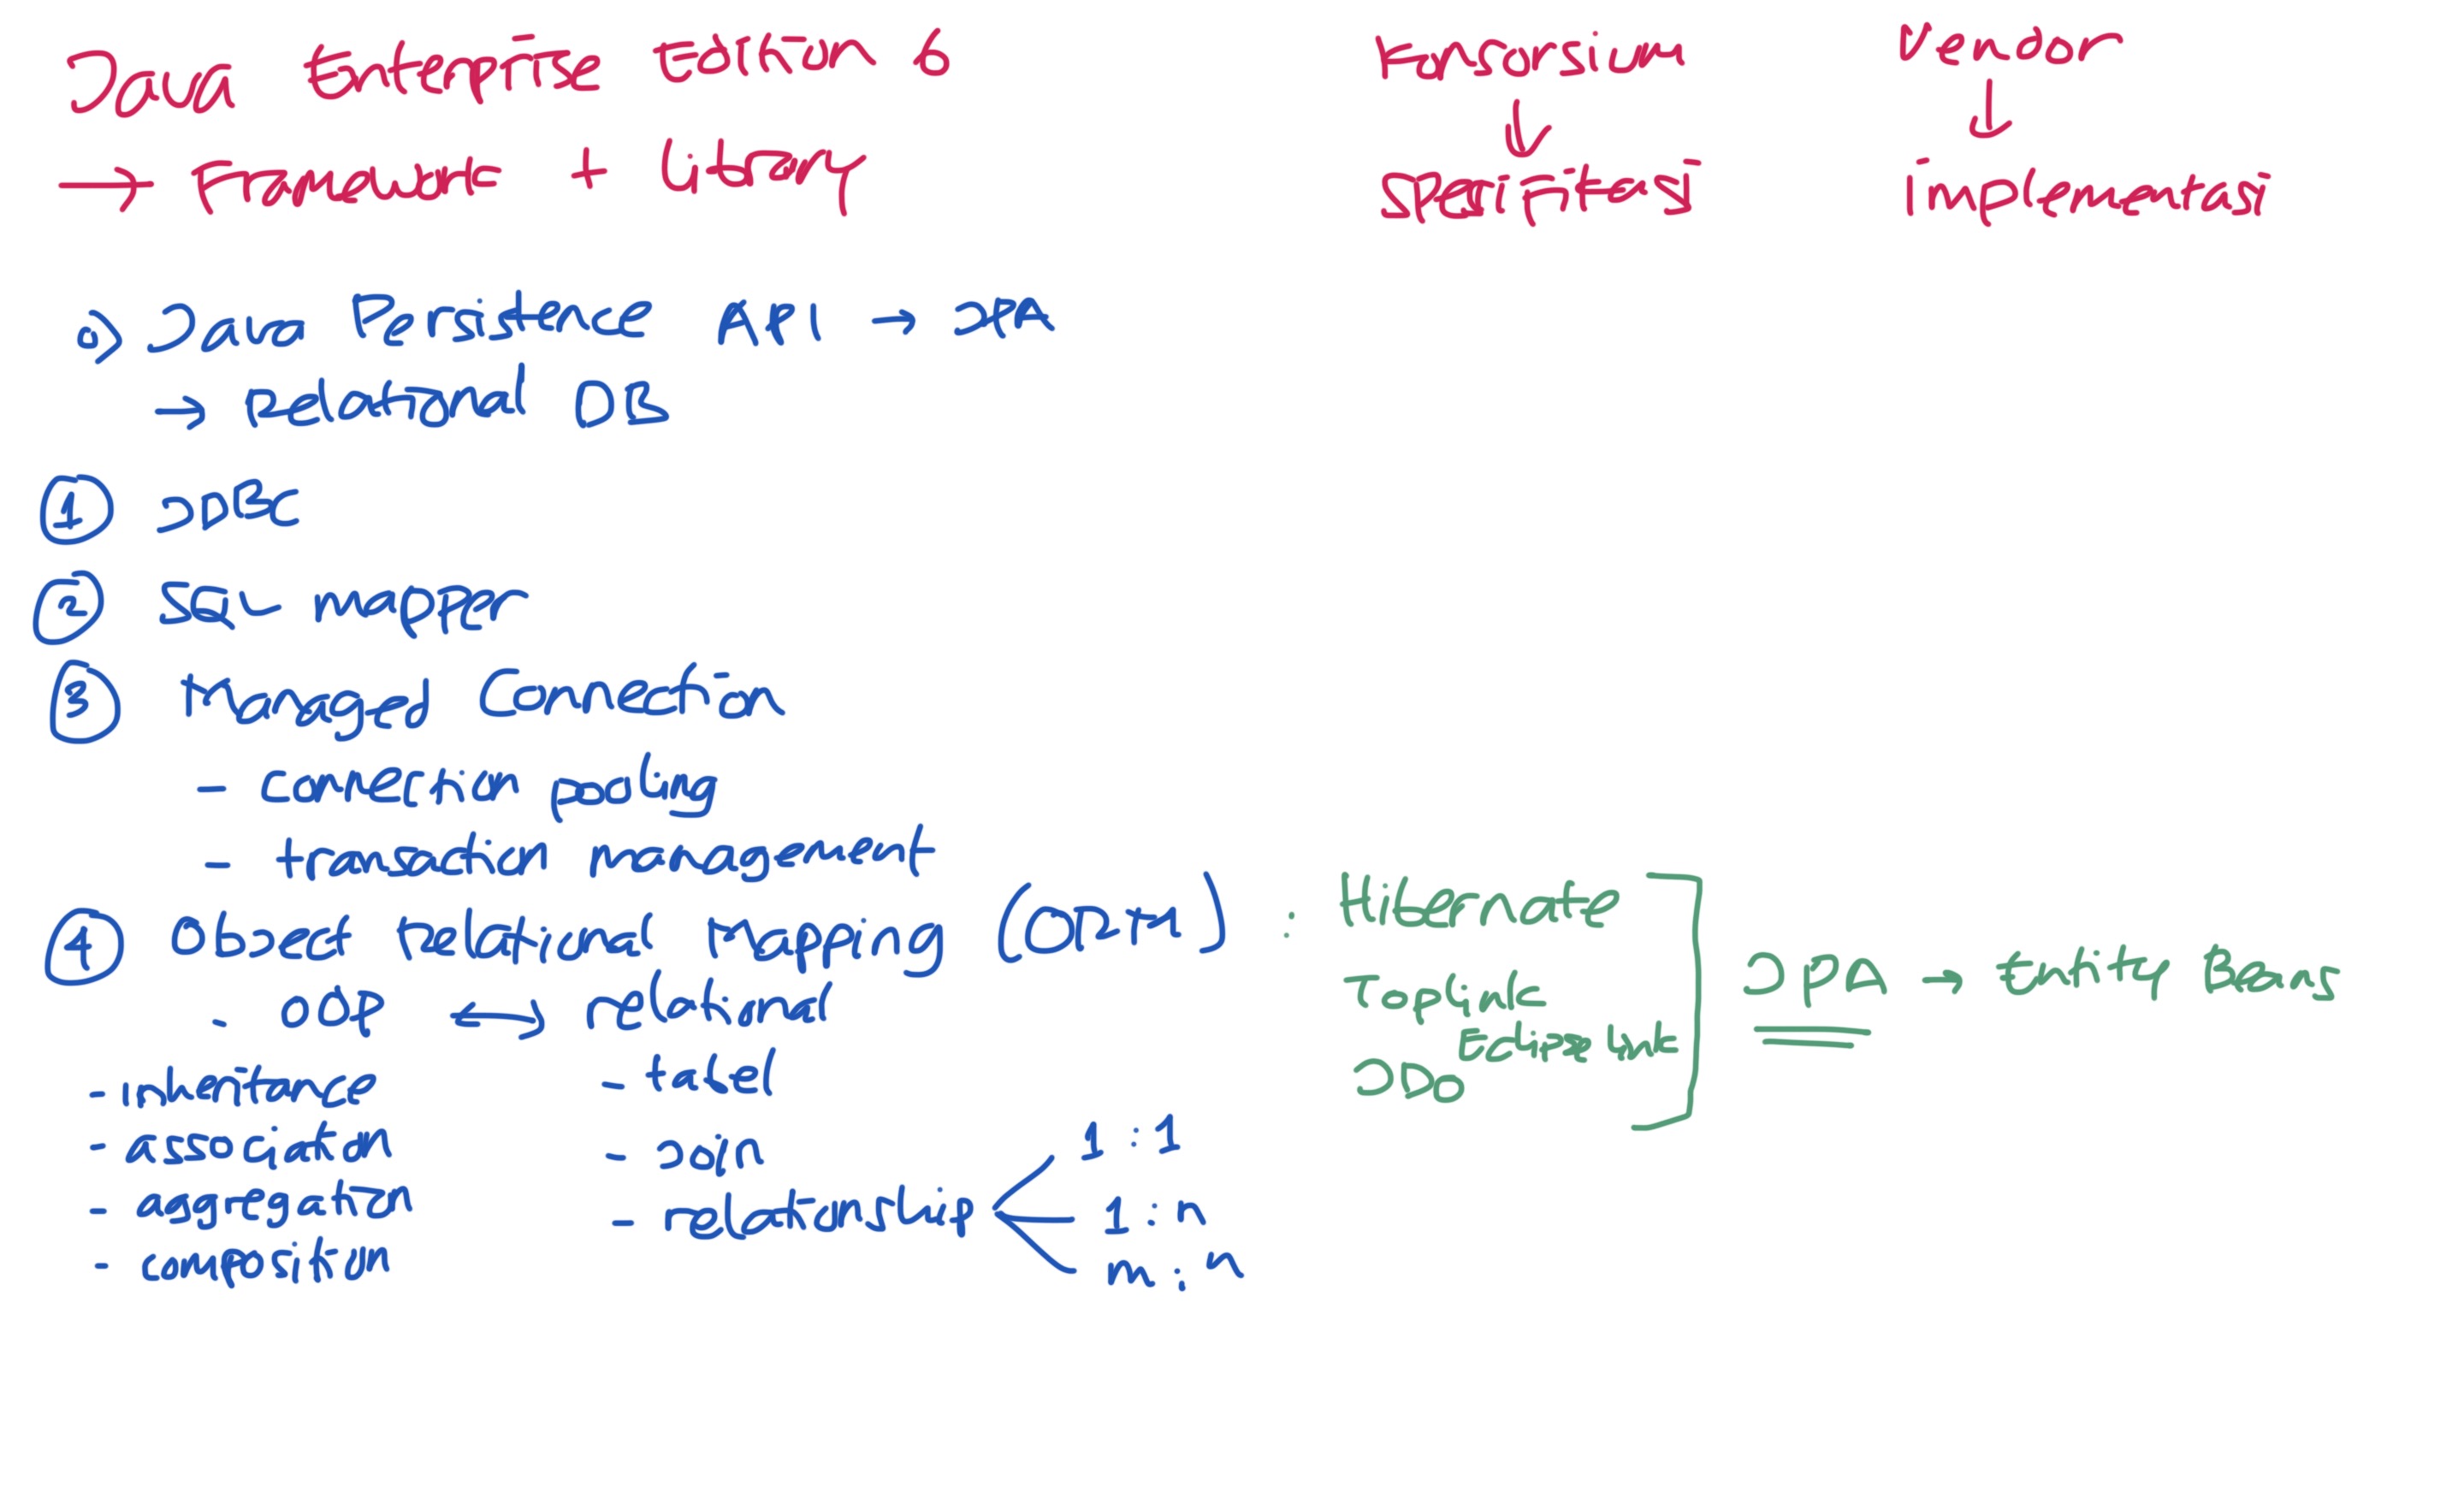 Java Enterprise Edition 6
→ Framework + Library
Konsorsium
↓
Spesifikasi
Vendor
↓
Implementasi
o) Java Persistence API → JPA
→ Relational DB
① JDBC
② SQL mapper
③ Managed Connection
- connection pooling
- transaction management
④ Object Relational Mapping (ORM) : Hibernate
TopLink
EclipseLink
JDO
JPA → Entity Beans
- OOP ↔ relational
- inheritance
- association
- aggregation
- composition
- tabel
- join
- relationship
1 : 1
1 : n
m : n